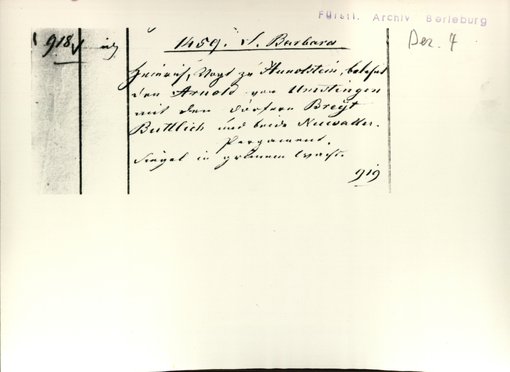 Fürstl. Archiv Berleburg
Dez. 7
918.
1459. S. Barbara
Heinrich, Vogt zu Hunolstein, belehnt
den Arnold von Vinstingen
mit den Dörfern Breyt
Buttlich und beide
Pergament.
Siegel in grünem Wachs.
919